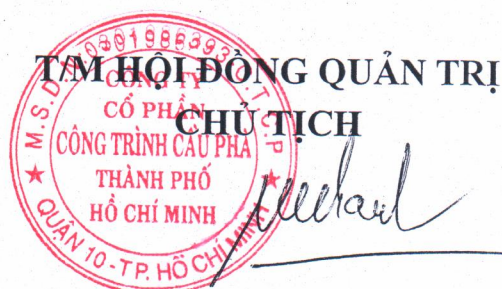 T/M HỘI ĐỒNG QUẢN TRỊ
CHỦ TỊCH
CÔNG TY
CỔ PHẦN
CÔNG TRÌNH CẦU PHÀ
THÀNH PHỐ
HỒ CHÍ MINH
QUẬN 10 - T.P. HỒ CHÍ MINH